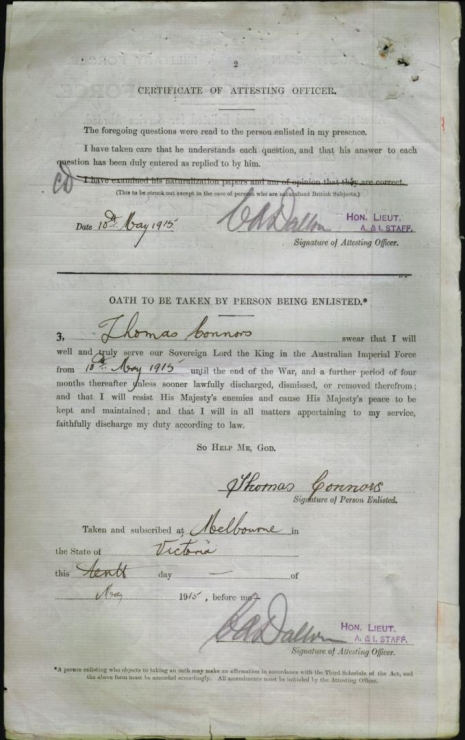 2
CERTIFICATE OF ATTESTING OFFICER.
The foregoing questions were read to the person enlisted in my presence.
I have taken care that he understands each question, and that his answer to each
question has been duly entered as replied to by him.
I have examined his naturalization papers and am of opinion that they are correct.
(This to be struck out except in the case of persons who are naturalized British Subjects.)
Date 10th May 1915
HON. LIEUT.
A. & I. STAFF.
Signature of Attesting Officer.
OATH TO BE TAKEN BY PERSON BEING ENLISTED.*
I, Thomas Connors swear that I will
well and truly serve our Sovereign Lord the King in the Australian Imperial Force
from 10th May 1915 until the end of the War, and a further period of four
months thereafter unless sooner lawfully discharged, dismissed, or removed therefrom;
and that I will resist His Majesty's enemies and cause His Majesty's peace to be
kept and maintained; and that I will in all matters appertaining to my service,
faithfully discharge my duty according to law.
SO HELP ME, GOD.
Thomas Connors
Signature of Person Enlisted.
Taken and subscribed at Melbourne in
the State of Victoria
this tenth day — of
May 1915, before me—
HON. LIEUT.
A. & I. STAFF.
Signature of Attesting Officer.
*A person enlisting who objects to taking an oath may make an affirmation in accordance with the Third Schedule of the Act, and
the above form must be amended accordingly. All amendments must be initialed by the Attesting Officer.